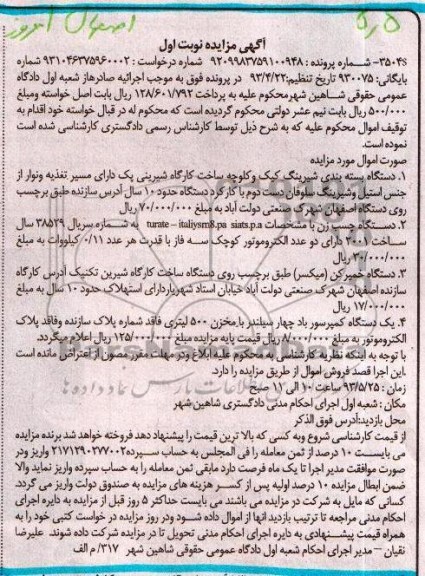 ۵,۵ اصفهان امروز
آگهی مزایده نوبت اول
۳۵۰۴s- شـماره پرونده : ۹۲۰۹۹۸۳۷۵۹۱۰۰۹۴۸ شماره درخواست : ۹۳۱۰۴۶۳۷۵۹۶۰۰۰۲ شماره
بایگانی: ۹۳۰۰۷۵ تاریخ تنظیم:۹۳/۴/۲۲ در پرونده فوق به موجب اجرائیه صادرهاز شعبه اول دادگاه
عمومی حقوقی شـاهین شهرمحکوم علیه به پرداخت ۱۲۸/۶۰۱/۷۹۲ ریال بابت اصل خواسته ومبلغ
۵۰۰/۰۰۰ ریال بابت نیم عشر دولتی محکوم گردیده است که محکوم له در قبال خواسته خود اقدام به
توقیف اموال محکوم علیه که به شرح ذیل توسط کارشناس رسمی دادگستری کارشناسی شده است
نموده است.
صورت اموال مورد مزایده
۱. دستگاه بسته بندی شیرینگ کیک وکلوچه ساخت کارگاه شیرینی پک دارای مسیر تغذیه ونوار از
جنس استیل وشیرینگ سلوفان دست دوم با کارکرد دستگاه حدود ۱۰ سال آدرس سازنده طبق برچسب
روی دستگاه اصفهان شهرک صنعتی دولت آباد به مبلغ ۷۰/۰۰۰/۰۰۰ ریال
۲. دسـتگاه چسب زن با مشخصات turate – italiysm8.pa siats.p.a به شماره سریال ۳۸۵۲۹ سال
ساخت ۲۰۰۱ دارای دو عدد الکتروموتور کوچک سه فاز با قدرت هر عدد ۰/۱۱ کیلووات به مبلغ
۳۰/۰۰۰/۰۰۰ ریال
۳. دستگاه خمیرکن (میکسر) طبق برچسب روی دستگاه ساخت کارگاه شیرین تکنیک آدرس کارگاه
سازنده اصفهان شهرک صنعتی دولت آباد خیابان استاد شهریاردارای استهلاک حدود ۱۰ سال به مبلغ
۱۷/۰۰۰/۰۰۰ ریال
۴. یک دستگاه کمپرسور باد چهار سیلندر با مخزن ۵۰۰ لیتری فاقد شماره پلاک سازنده وفاقد پلاک
الکتروموتور به مبلغ ۸/۰۰۰/۰۰۰ ریال قیمت پایه مزایده مبلغ ۱۲۵/۰۰۰/۰۰۰ ریال اعلام میگردد.
با توجه به اینکه نظریه کارشناسی به محکوم علیه ابلاغ ودر مهلت مقرر مصون از اعتراض مانده است
.این اجرا قصد فروش اموال از طریق مزایده را دارد.
زمان : ۹۳/۵/۲۵ ساعت ۱۰ الی ۱۱ صبح
مکان : شعبه اول اجرای احکام مدنی دادگستری شاهین شهر
محل بازدید:آدرس فوق الذکر
از قیمت کارشناسی شروع وبه کسی که بالا ترین قیمت را پیشنهاد دهد فروخته خواهد شد برنده مزایده
می بایست ۱۰ درصد از ثمن معامله را فی المجلس به حساب سپرده۲۱۷۱۲۹۰۲۷۷۰۰۲ واریز ودر
صورت موافقت مدیر اجرا تا یک ماه فرصت دارد مابقی ثمن معامله را به حساب سپرده واریز نماید والا
ضمن ابطال مزایده ۱۰ درصد اولیه پس از کسـر هزینه های مزایده به صندوق دولت واریز می گردد.
کسانی که مایل به شرکت در مزایده می باشند می بایست حداکثر ۵ روز قبل از مزایده به دایره اجرای
احکام مدنی مراجعه تا ترتیب بازدید انها از اموال داده شـود ودر روز مزایده در خواست کتبی خود را به
همراه قیمت پیشـنهادی به دایره اجرای احکام مدنی تحویل تا در مزایده شرکت داده شوند. علیرضا
نقیان – مدیر اجرای احکام شعبه اول دادگاه عمومی حقوقی شاهین شهر ۳۱۷/ م الف